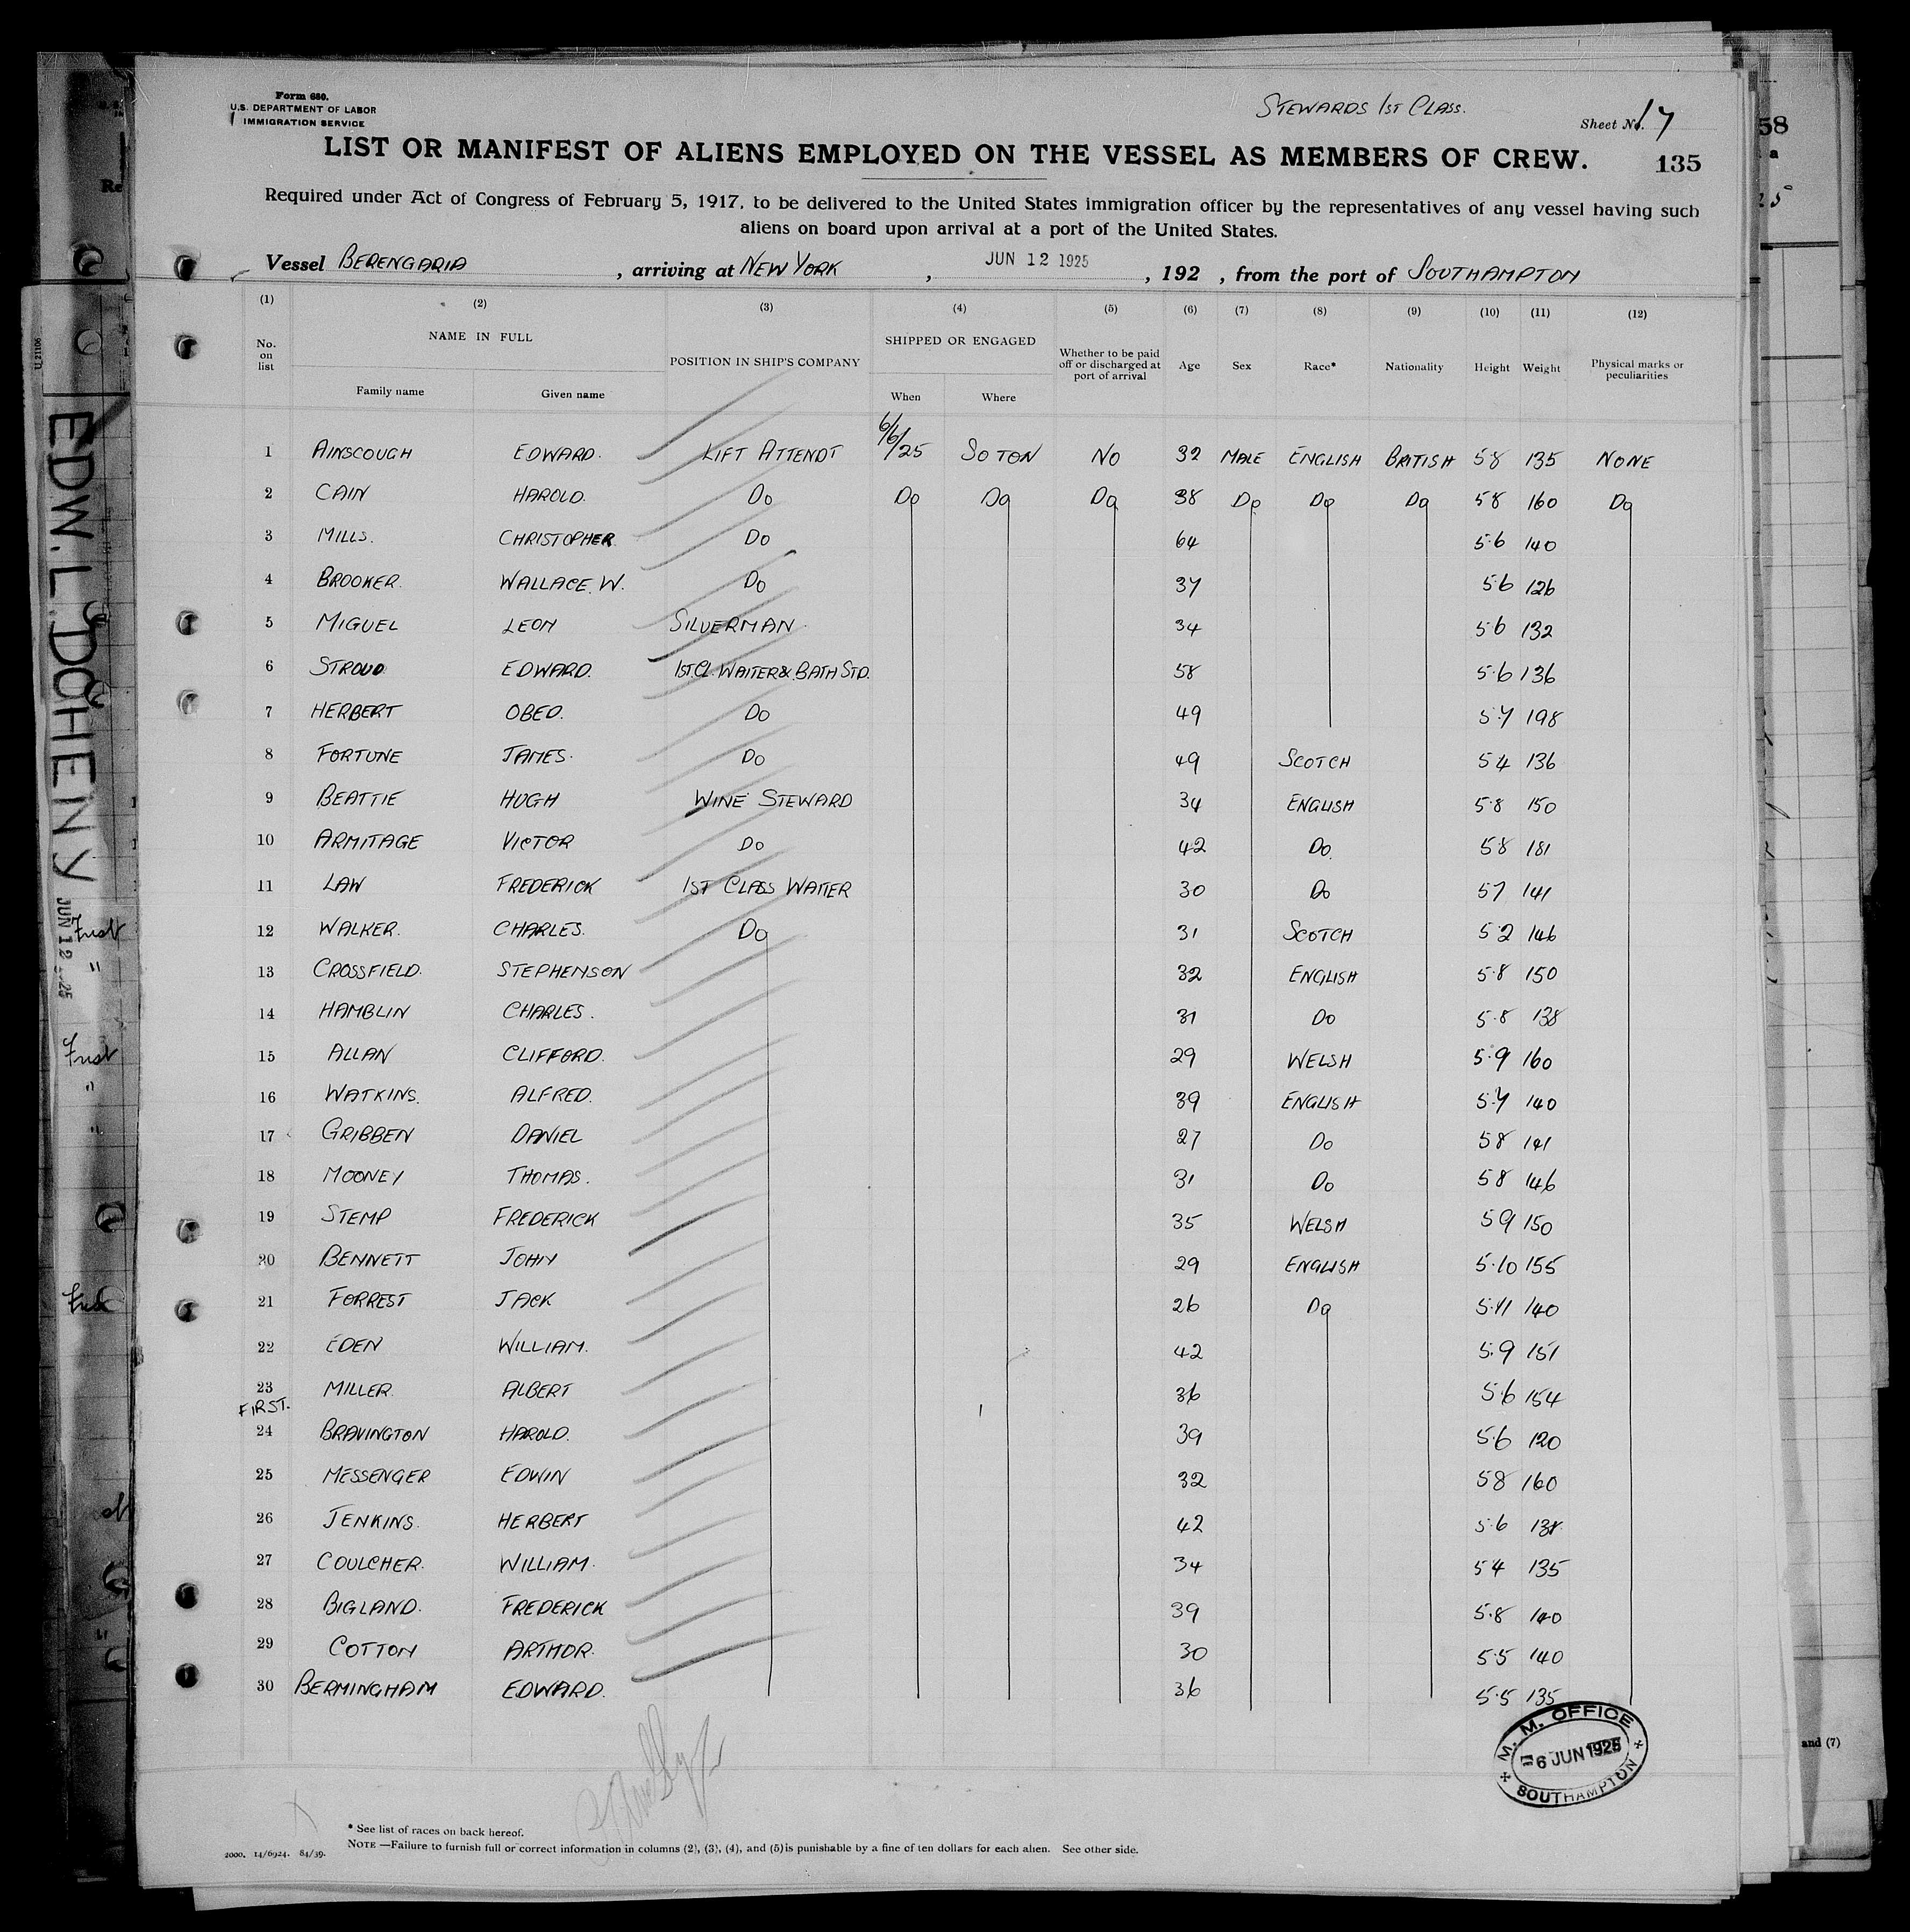 Form 680.
U.S. DEPARTMENT OF LABOR
IMMIGRATION SERVICE
STEWARDS 1ST CLASS.
Sheet No. 17
LIST OR MANIFEST OF ALIENS EMPLOYED ON THE VESSEL AS MEMBERS OF CREW.
135
Required under Act of Congress of February 5, 1917, to be delivered to the United States immigration officer by the representatives of any vessel having such
aliens on board upon arrival at a port of the United States.
Vessel BERENGARIA , arriving at NEW YORK , JUN 12 1925 , 192 , from the port of SOUTHAMPTON
(1) (2) (3) (4) (5) (6) (7) (8) (9) (10) (11) (12)
No. on list NAME IN FULL POSITION IN SHIP'S COMPANY SHIPPED OR ENGAGED Whether to be paid off or discharged at port of arrival Age Sex Race* Nationality Height Weight Physical marks or peculiarities
Family name Given name When Where
1 AINSCOUGH EDWARD. LIFT ATTENDT 6/6/25 SOTON NO 32 MALE ENGLISH BRITISH 58 135 NONE
2 CAIN HAROLD. Do Do Do Do 38 Do Do Do 58 160 Do
3 MILLS. CHRISTOPHER Do 64 5.6 140
4 BROOKER. WALLACE. W. Do 37 56 126
5 MIGUEL LEON SILVERMAN. 34 56 132
6 STROUD EDWARD. 1ST.CL.WAITER & BATH STD. 58 5.6 136
7 HERBERT OBED. Do 49 5.7 198
8 FORTUNE JAMES. Do 49 SCOTCH 54 136
9 BEATTIE HUGH WINE STEWARD 34 ENGLISH 5.8 150
10 ARMITAGE VICTOR Do 42 Do. 58 181
11 LAW FREDERICK 1ST CLASS WAITER 30 Do 57 141
12 WALKER. CHARLES. Do 31 SCOTCH 52 146
13 CROSSFIELD. STEPHENSON 32 ENGLISH 5.8 150
14 HAMBLIN CHARLES. 31 Do 5.8 138
15 ALLAN CLIFFORD. 29 WELSH 5.9 160
16 WATKINS. ALFRED. 39 ENGLISH 5.7 140
17 GRIBBEN DANIEL 27 Do 58 141
18 MOONEY THOMAS. 31 Do 58 146
19 STEMP FREDERICK 35 WELSH 59 150
20 BENNETT JOHN 29 ENGLISH 5.10 155
21 FORREST JACK 26 Do 5.11 140
22 EDEN WILLIAM. 42 5.9 151
23 MILLER. ALBERT 36 5.6 154
FIRST.
24 BRAVINGTON HAROLD. 39 5.6 120
25 MESSENGER EDWIN 32 58 160
26 JENKINS. HERBERT 42 5.6 138
27 COULCHER. WILLIAM. 34 54 135
28 BIGLAND. FREDERICK 39 5.8 140
29 COTTON ARTHUR. 30 5.5 140
30 BERMINGHAM EDWARD. 36 5.5 135
M. M. OFFICE
6 JUN 1925
SOUTHAMPTON
* See list of races on back hereof.
NOTE —Failure to furnish full or correct information in columns (2), (3), (4), and (5) is punishable by a fine of ten dollars for each alien. See other side.
2000. 14/6924. 84/39.
EDW. L. DOHENY
JUN 12 1925
58
and (7)